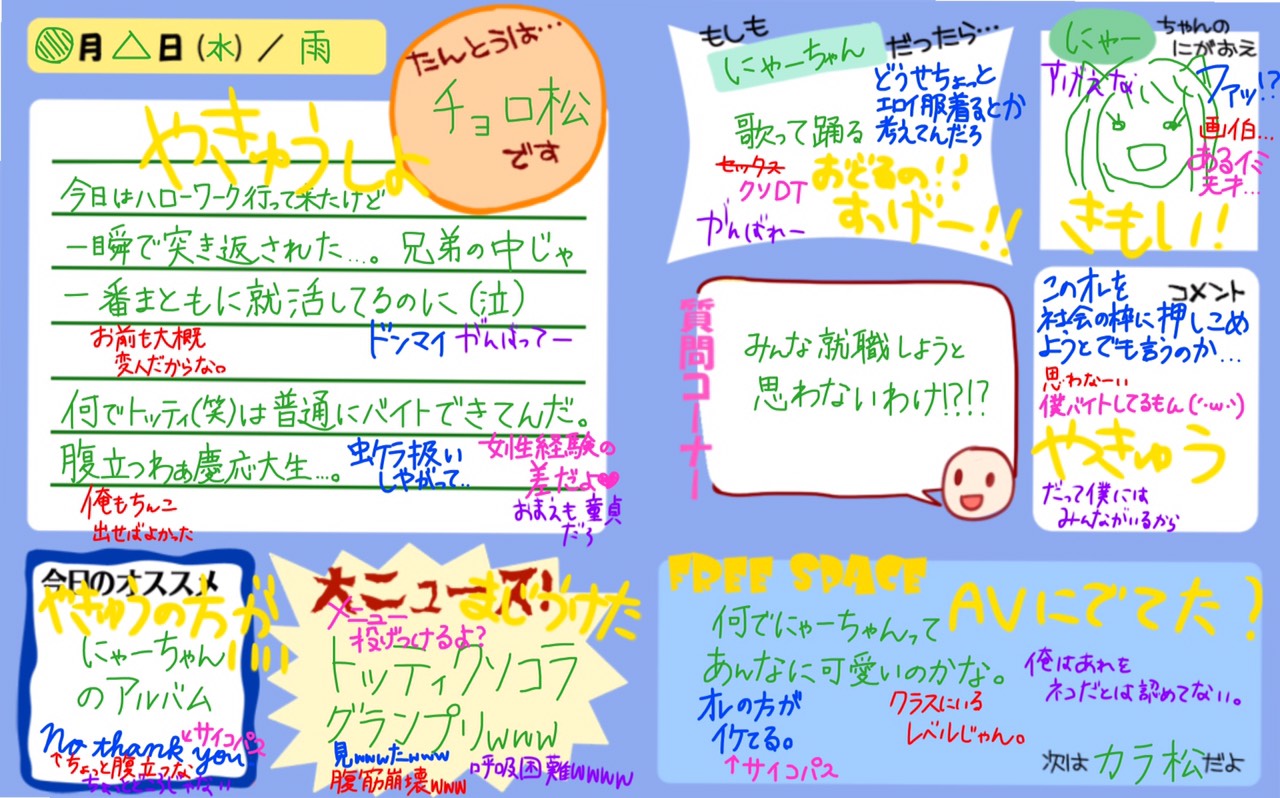 月△日(水)／雨
たんとうは…
チョロ松
です
やきゅうしよ
今日はハローワーク行って来たけど
一瞬で突き返された…。兄弟の中じゃ
一番まともに就活してるのに(泣)
お前も大概
変人だからな。
ドンマイ
がんばってー
何でトッティ(笑)は普通にバイトできてんだ。
腹立つわぁ慶応大生…。
虫ケラ扱い
しやがって..
女性経験の
差だよ♥
おまえも童貞
だろ
俺もちんこ
出せばよかった
今日のオススメ
やきゅうの方が
いい!
にゃーちゃん
のアルバム
No thank you
↙サイコパス
↑ちょっと腹立つな
ちょっとどころじゃない
大ニュース!
まじうけた
メニュー
投げつけるよ?
トッティクソコラ
グランプリwww
見wwwたwww
腹筋崩壊www
呼吸困難wwww
もしも
にゃーちゃん
だったら…
どうせちょっと
エロイ服着るとか
考えてんだろ
歌って踊る
セックス
クソDT
おどるの!!
すっげー!!
がんばれー
にゃー
ちゃんの
にがおえ
ファッ!?
画伯…
あるイミ
天才…
きもい!
質問コーナー
みんな就職しようと
思わないわけ!?!?
コメント
このオレを
社会の枠に押しこめ
ようとでも言うのか…
思わなーい
僕バイトしてるもん(´･ω･`)
やきゅう
だって僕には
みんながいるから
FREE SPACE
AVにでてた?
何でにゃーちゃんって
あんなに可愛いのかな。
俺はあれを
ネコだとは認めてない。
オレの方が
イケてる。
↑サイコパス
クラスにいる
レベルじゃん。
次はカラ松だよ